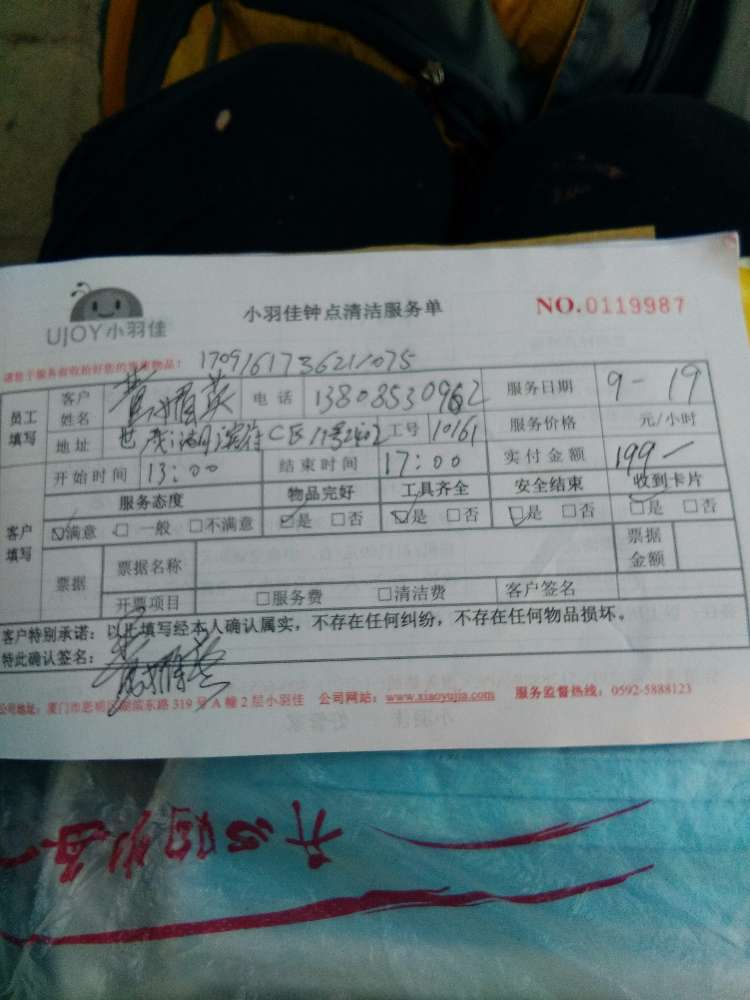 UJOY小羽佳
小羽佳钟点清洁服务单
NO.0119987
1709161736211075
员工填写
客户姓名 黄耀英 电话 13808530962 服务日期 9-19
地址 世茂 C区11号2402 工号 10161 服务价格 元/小时
开始时间 13:00 结束时间 17:00 实付金额 199-
服务态度 物品完好 工具齐全 安全结束 收到卡片
客户填写
☑满意 □一般 □不满意 ☑是 □否 ☑是 □否 ☑是 □否 □是 □否
票据 票据名称 票据金额
开票项目 □服务费 □清洁费 客户签名
客户特别承诺：以上填写经本人确认属实，不存在任何纠纷，不存在任何物品损坏。
特此确认签名：黄耀英
公司地址：厦门市思明区湖滨东路319号A幢2层小羽佳 公司网站：www.xiaoyujia.com 服务监督热线：0592-5888123